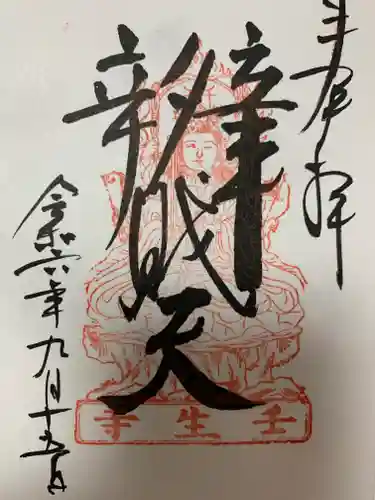 奉拝
辨戝天
令和六年九月十五日
壬生寺